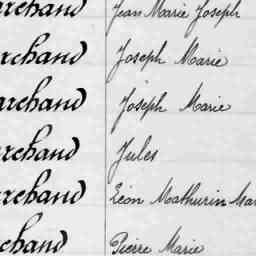 rchand Jean Marie Joseph
rchand Joseph Marie
archand Joseph Marie
rchand Jules
rchand Léon Mathurin Mar
chand Pierre Marie